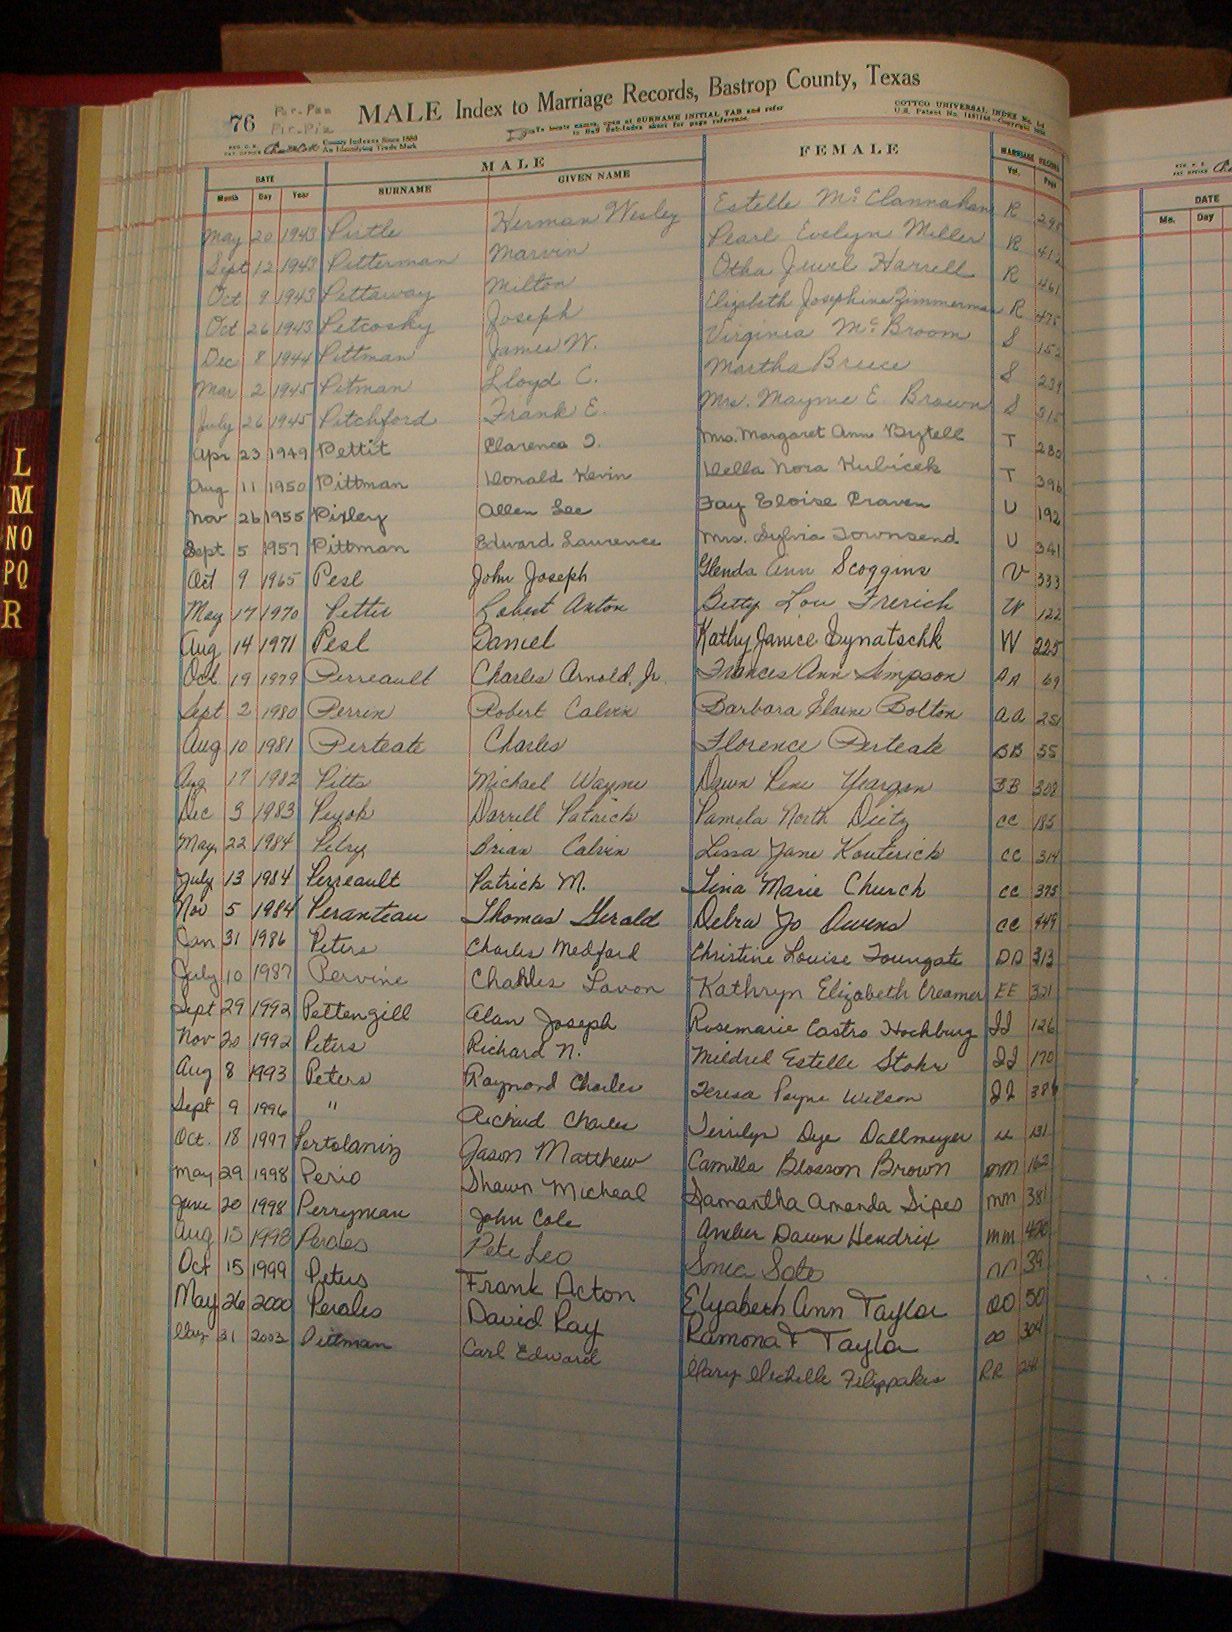 76 Per.-Pem MALE Index to Marriage Records, Bastrop County, Texas
Pir.-Piz
REG. U.S. PAT. OFFICE County Indexes Since 1888 An Identifying Trade Mark
To locate names, open at SURNAME INITIAL TAB and refer to Sub-Index sheet for page reference.
COTTCO UNIVERSAL INDEX No.
U.S. Patent No. Copyright
DATE MALE FEMALE MARRIAGE RECORD
Month Day Year SURNAME GIVEN NAME Vol. Page
May 20 1943 Pirtle Herman Wesley Estelle McClannahan R 298
Sept 12 1943 Pitterman Marvin Pearl Evelyn Miller R 412
Oct 9 1943 Pettaway Milton Otha Jewel Harrell R 461
Oct 26 1943 Petcosky Joseph Elizabeth Josephine Zimmerman R 475
Dec 8 1944 Pittman James W. Virginia McBroom S 152
Mar 2 1945 Pitman Lloyd C. Martha Bruce S 239
July 26 1945 Pitchford Frank E. Mrs. Mayme E. Brown S 315
Apr 23 1949 Pettit Clarence Mrs. Margaret Ann Bytell T 280
Aug 11 1950 Pittman Donald Kevin Della Nora Kubicek T 396
Nov 26 1955 Pixley Allen Lee Fay Eloise Craven U 192
Sept 5 1957 Pittman Edward Laurence Mrs. Sylvia Townsend U 341
Oct 9 1965 Pesl John Joseph Glenda Ann Scoggins V 333
May 17 1970 Pettie Robert Anton Betty Lou Frerich W 122
Aug 14 1971 Pesl Daniel Kathy Janice Synatschk W 225
Oct 19 1979 Perreault Charles Arnold, Jr. Frances Ann Simpson AA 69
Sept 2 1980 Perrin Robert Calvin Barbara Elaine Bolton AA 251
Aug 10 1981 Perteate Charles Florence Perteate BB 55
Aug 17 1982 Pitts Michael Wayne Dawn Rene Yeargan BB 302
Dec 3 1983 Darrell Patrick Pamela North Dietz CC 185
May 22 1984 Petry Brian Calvin Lissa Jane Kouterick CC 314
July 13 1984 Perreault Patrick M. Tina Marie Church CC 375
Nov 5 1984 Peranteau Thomas Gerald Debra Jo Owens CC 449
Jan 31 1986 Peters Charles Medford Christine Louise Toungate DD 313
July 10 1987 Pervine Charles Lavon Kathryn Elizabeth Creamer EE 321
Sept 29 1992 Pettengill Alan Joseph Rosemarie Castro Hochburg JJ 126
Nov 20 1992 Peters Richard N. Mildred Estelle Stohr JJ 170
Aug 8 1993 Peters Raymond Charles Teresa Payne Wilson JJ
Sept 9 1996 " Richard Charles Terrilyn Dye Dallmeyer LL 131
Oct. 18 1997 Pertolaniz Jason Matthew Camilla Blosson Brown mm 162
May 29 1998 Perio Shawn Micheal Samantha Amanda Sipes mm 381
June 20 1998 Perryman John Cole Amber Dawn Hendrix mm
Aug 15 1998 Perales Pete Leo Sonia Soto nn 39
Oct 15 1999 Peters Frank Acton Elyzabeth Ann Taylor OO 50
May 26 2000 Perales David Ray Ramona F Taylor OO 304
31 2003 Pittman Carl Edward Mary Michelle Filippakis RR
L
M
NO
PQ
R
DATE
Mo. Day